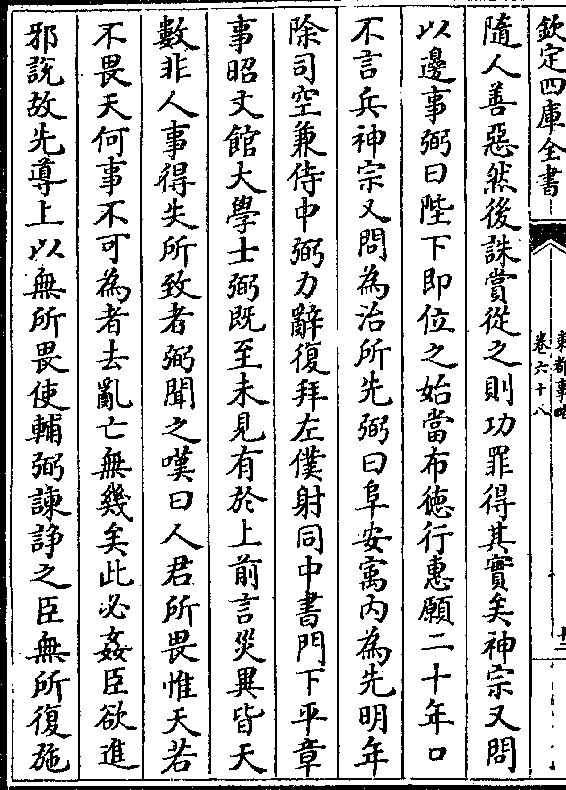 欽定四庫全書
東都事略
卷六十八
隨人善惡然後誅賞從之則功罪得其實矣神宗又問
以邊事弼曰陛下即位之始當布徳行惠願二十年口
不言兵神宗又問為治所先弼曰阜安㝢内為先明年
除司空兼侍中弼力辭復拜左僕射同中書門下平章
事昭文館大學士弼既至未見有於上前言災異皆天
數非人事得失所致者弼聞之嘆曰人君所畏惟天若
不畏天何事不可為者去亂亡無幾矣此必姦臣欲進
邪說故先導上以無所畏使輔弼諫諍之臣無所復施